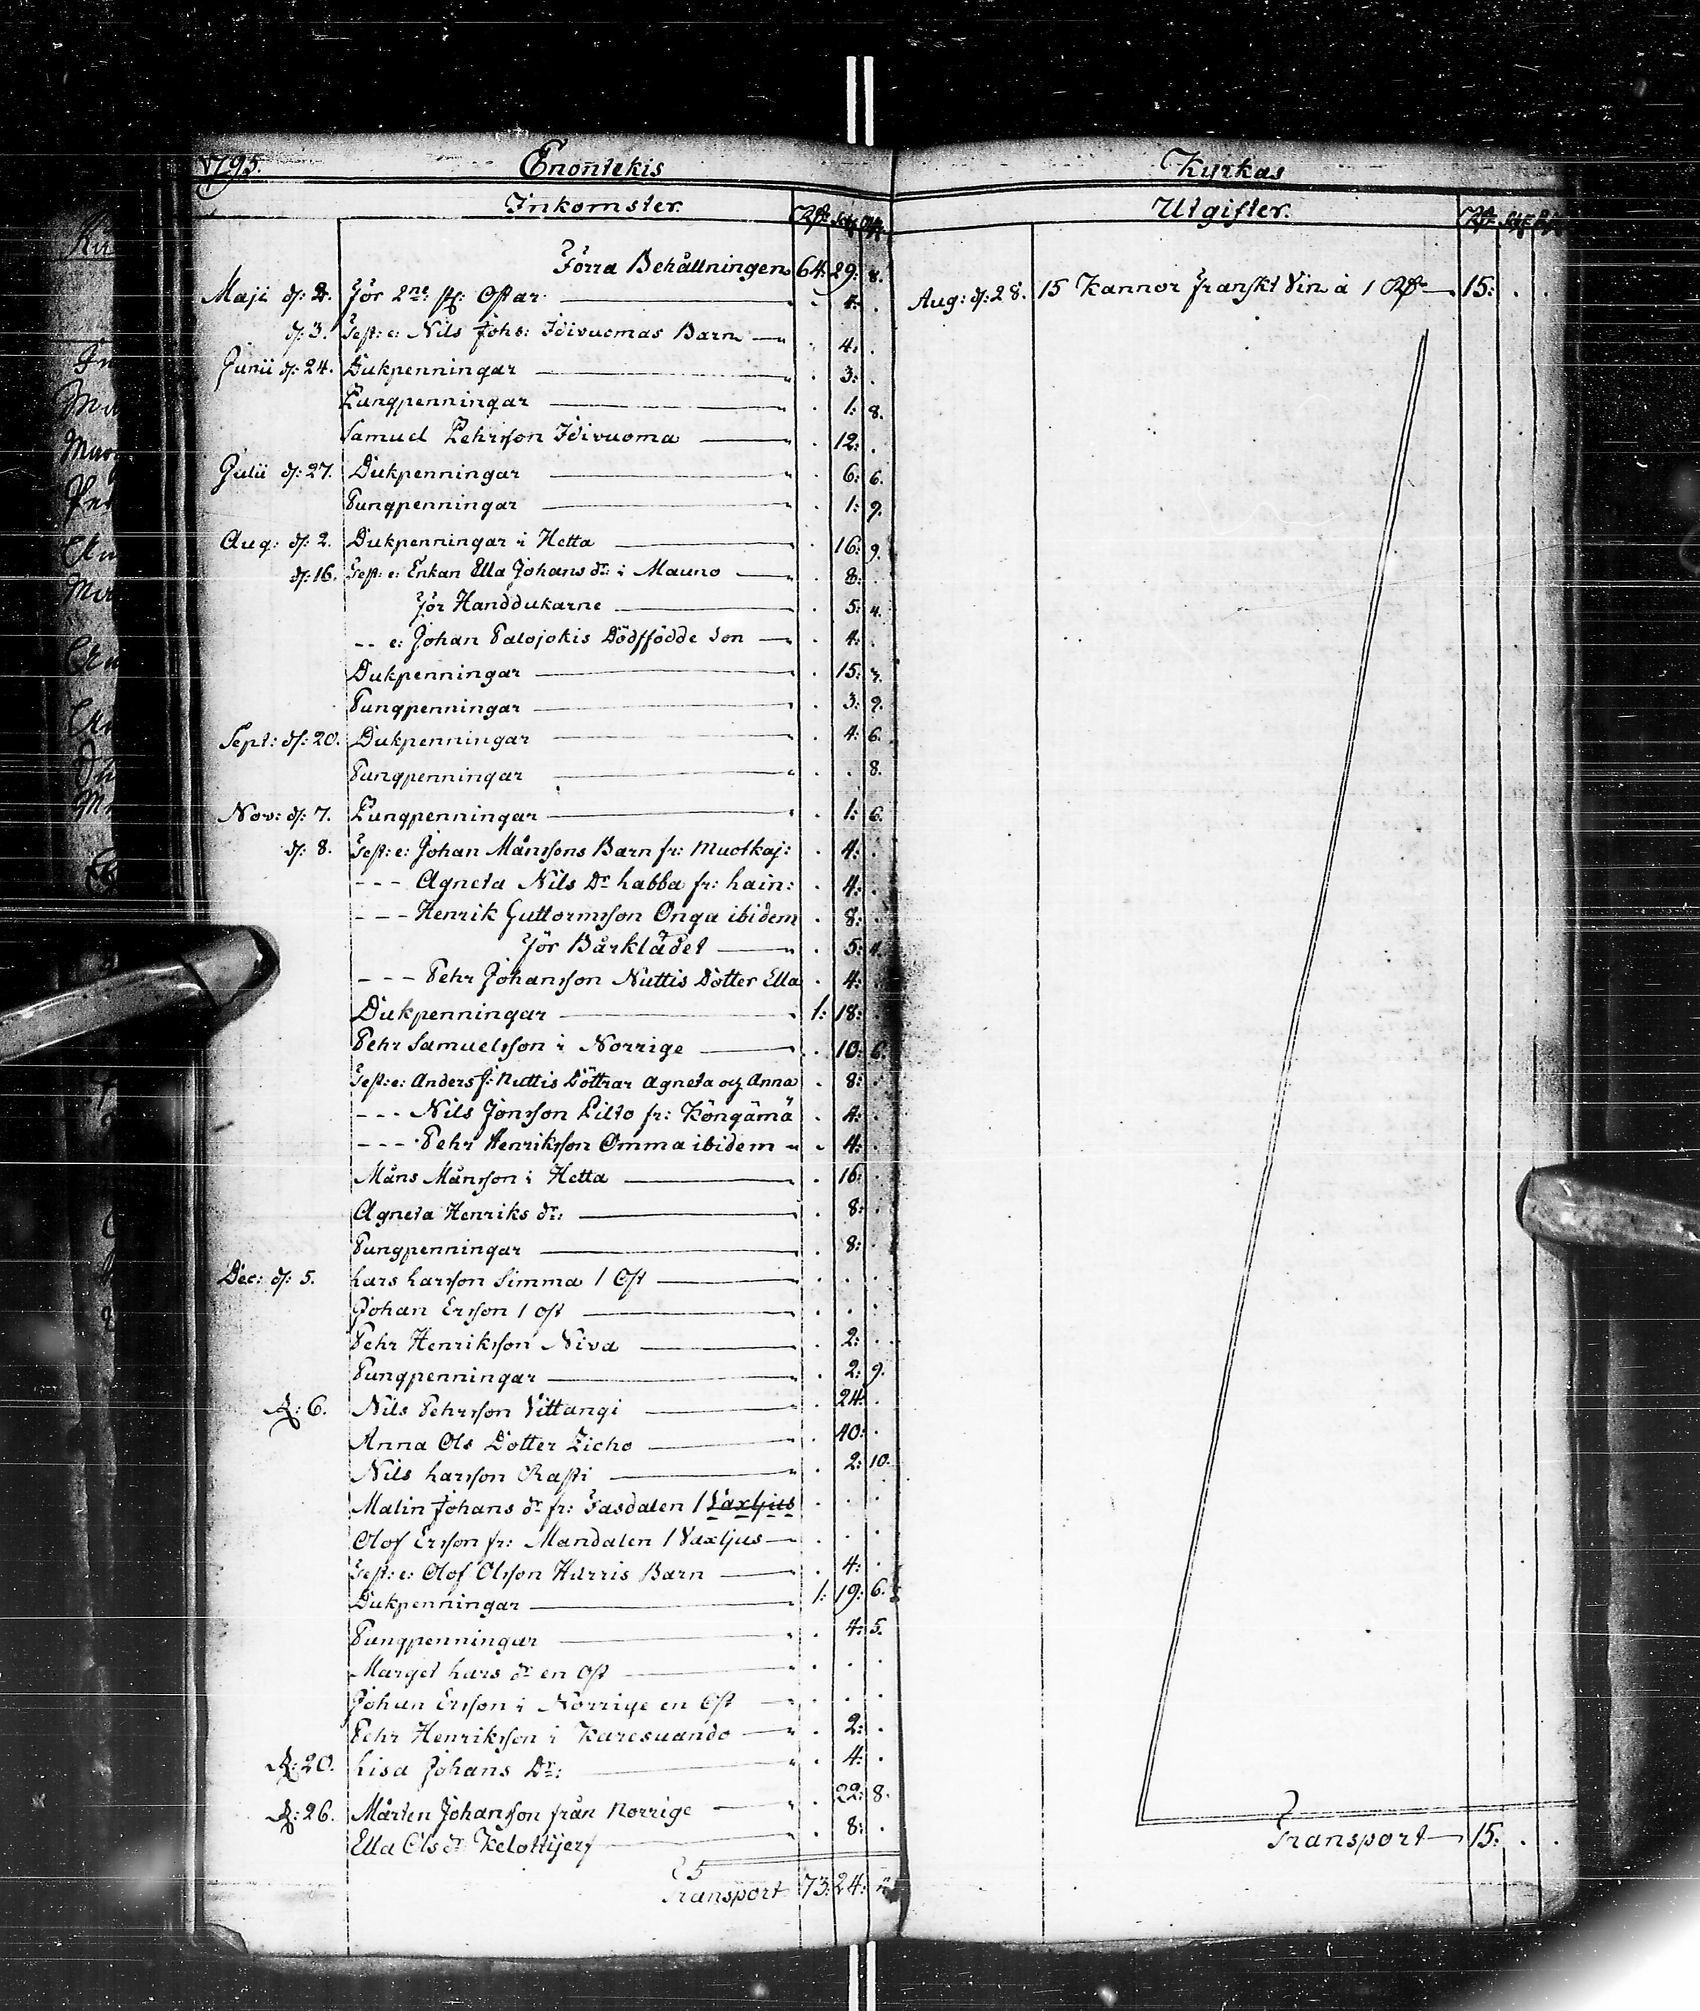 1795. Enontekis
Inkomster. Rd. sk. rst.
Förra Behållningen 64: 29: 8.
Maji d: 2. För 2ne st: Ostar . 4: .
d: 3. Test: e: Nils Johs: Idivuomas Barn . 4: .
Junii d: 24. Dukpenningar . 3: .
Pungpenningar . 1: 8.
Samuel Pehrsson Idivuoma . 12: .
Julii d: 27. Dukpenningar . 6: 6.
Pungpenningar . 1: 9.
Aug: d: 2. Dukpenningar i Hetta . 16: 9.
d: 16. Test: e: Enkan Ella Johans dr: i Mauno . 8: .
För Handdukarne . 5: 4.
-- e: Johan Palojokis Dödfödde Son . 4: .
Dukpenningar . 15: 7.
Pungpenningar . 3: 9.
Sept: d: 20. Dukpenningar . 4: 6.
Pungpenningar . . 8.
Nov: d: 7. Pungpenningar . 1: 6.
d: 8. Test: e: Johan Månssons Barn fr: Muotkaj: . 4: .
--- Agneta Nils Dr Labba fr: Lain: . 4: .
--- Henrik Guttormsson Onga ibidem . 8: .
För Bårklädet . 5: 4.
--- Pehr Johansson Nuttis Dotter Ella . 4: .
Dukpenningar 1: 18: .
Pehr Samuelsson i Norrige . 10: 6.
Test: e: Anders J: Nuttis Döttrar Agneta och Anna . 8: .
--- Nils Jonsson Pilto fr: Köngämä . 4: .
--- Pehr Henriksson Omma ibidem . 4: .
Måns Månsson i Hetta . 16: .
Agneta Henriks dr: . 8: .
Pungpenningar . 8: .
Dec: d: 5. Lars Larsson Simma 1 Ost . . .
Johan Ersson 1 ost . . .
Pehr Henriksson Niva . 2: .
Pungpenningar . 2: 9.
d: 6. Nils Pehrsson Vittangi . 24: .
Anna Ols Dotter Zicho . 40: .
Nils Larsson Rasti . 2: 10.
Malin Johans dr fr: Tasdalen 1 Vaxljus . . .
Olof Ersson fr: Mandalen 1 Vaxljus . . .
Test: e: Olof Olsson Hurris Barn . 4: .
Dukpenningar 1: 19: 6.
Pungpenningar . 4: 5.
Marget Lars dr en Ost . . .
Johan Ersson i Norrige en Ost . . .
Pehr Henriksson i Karesuando . 2: .
d: 20. Lisa Johans Dr: . 4: .
d: 26. Mårten Johansson från Norrige . 22: 8.
Ella Ols dr Kelottijerf . 8: .
Transport 73: 24:
Kyrkas
Utgifter. Rd. sk. rst.
Aug: d: 28. 15 Kannor franskt Vin à 1 Rd 15: . .
Transport 15: . .